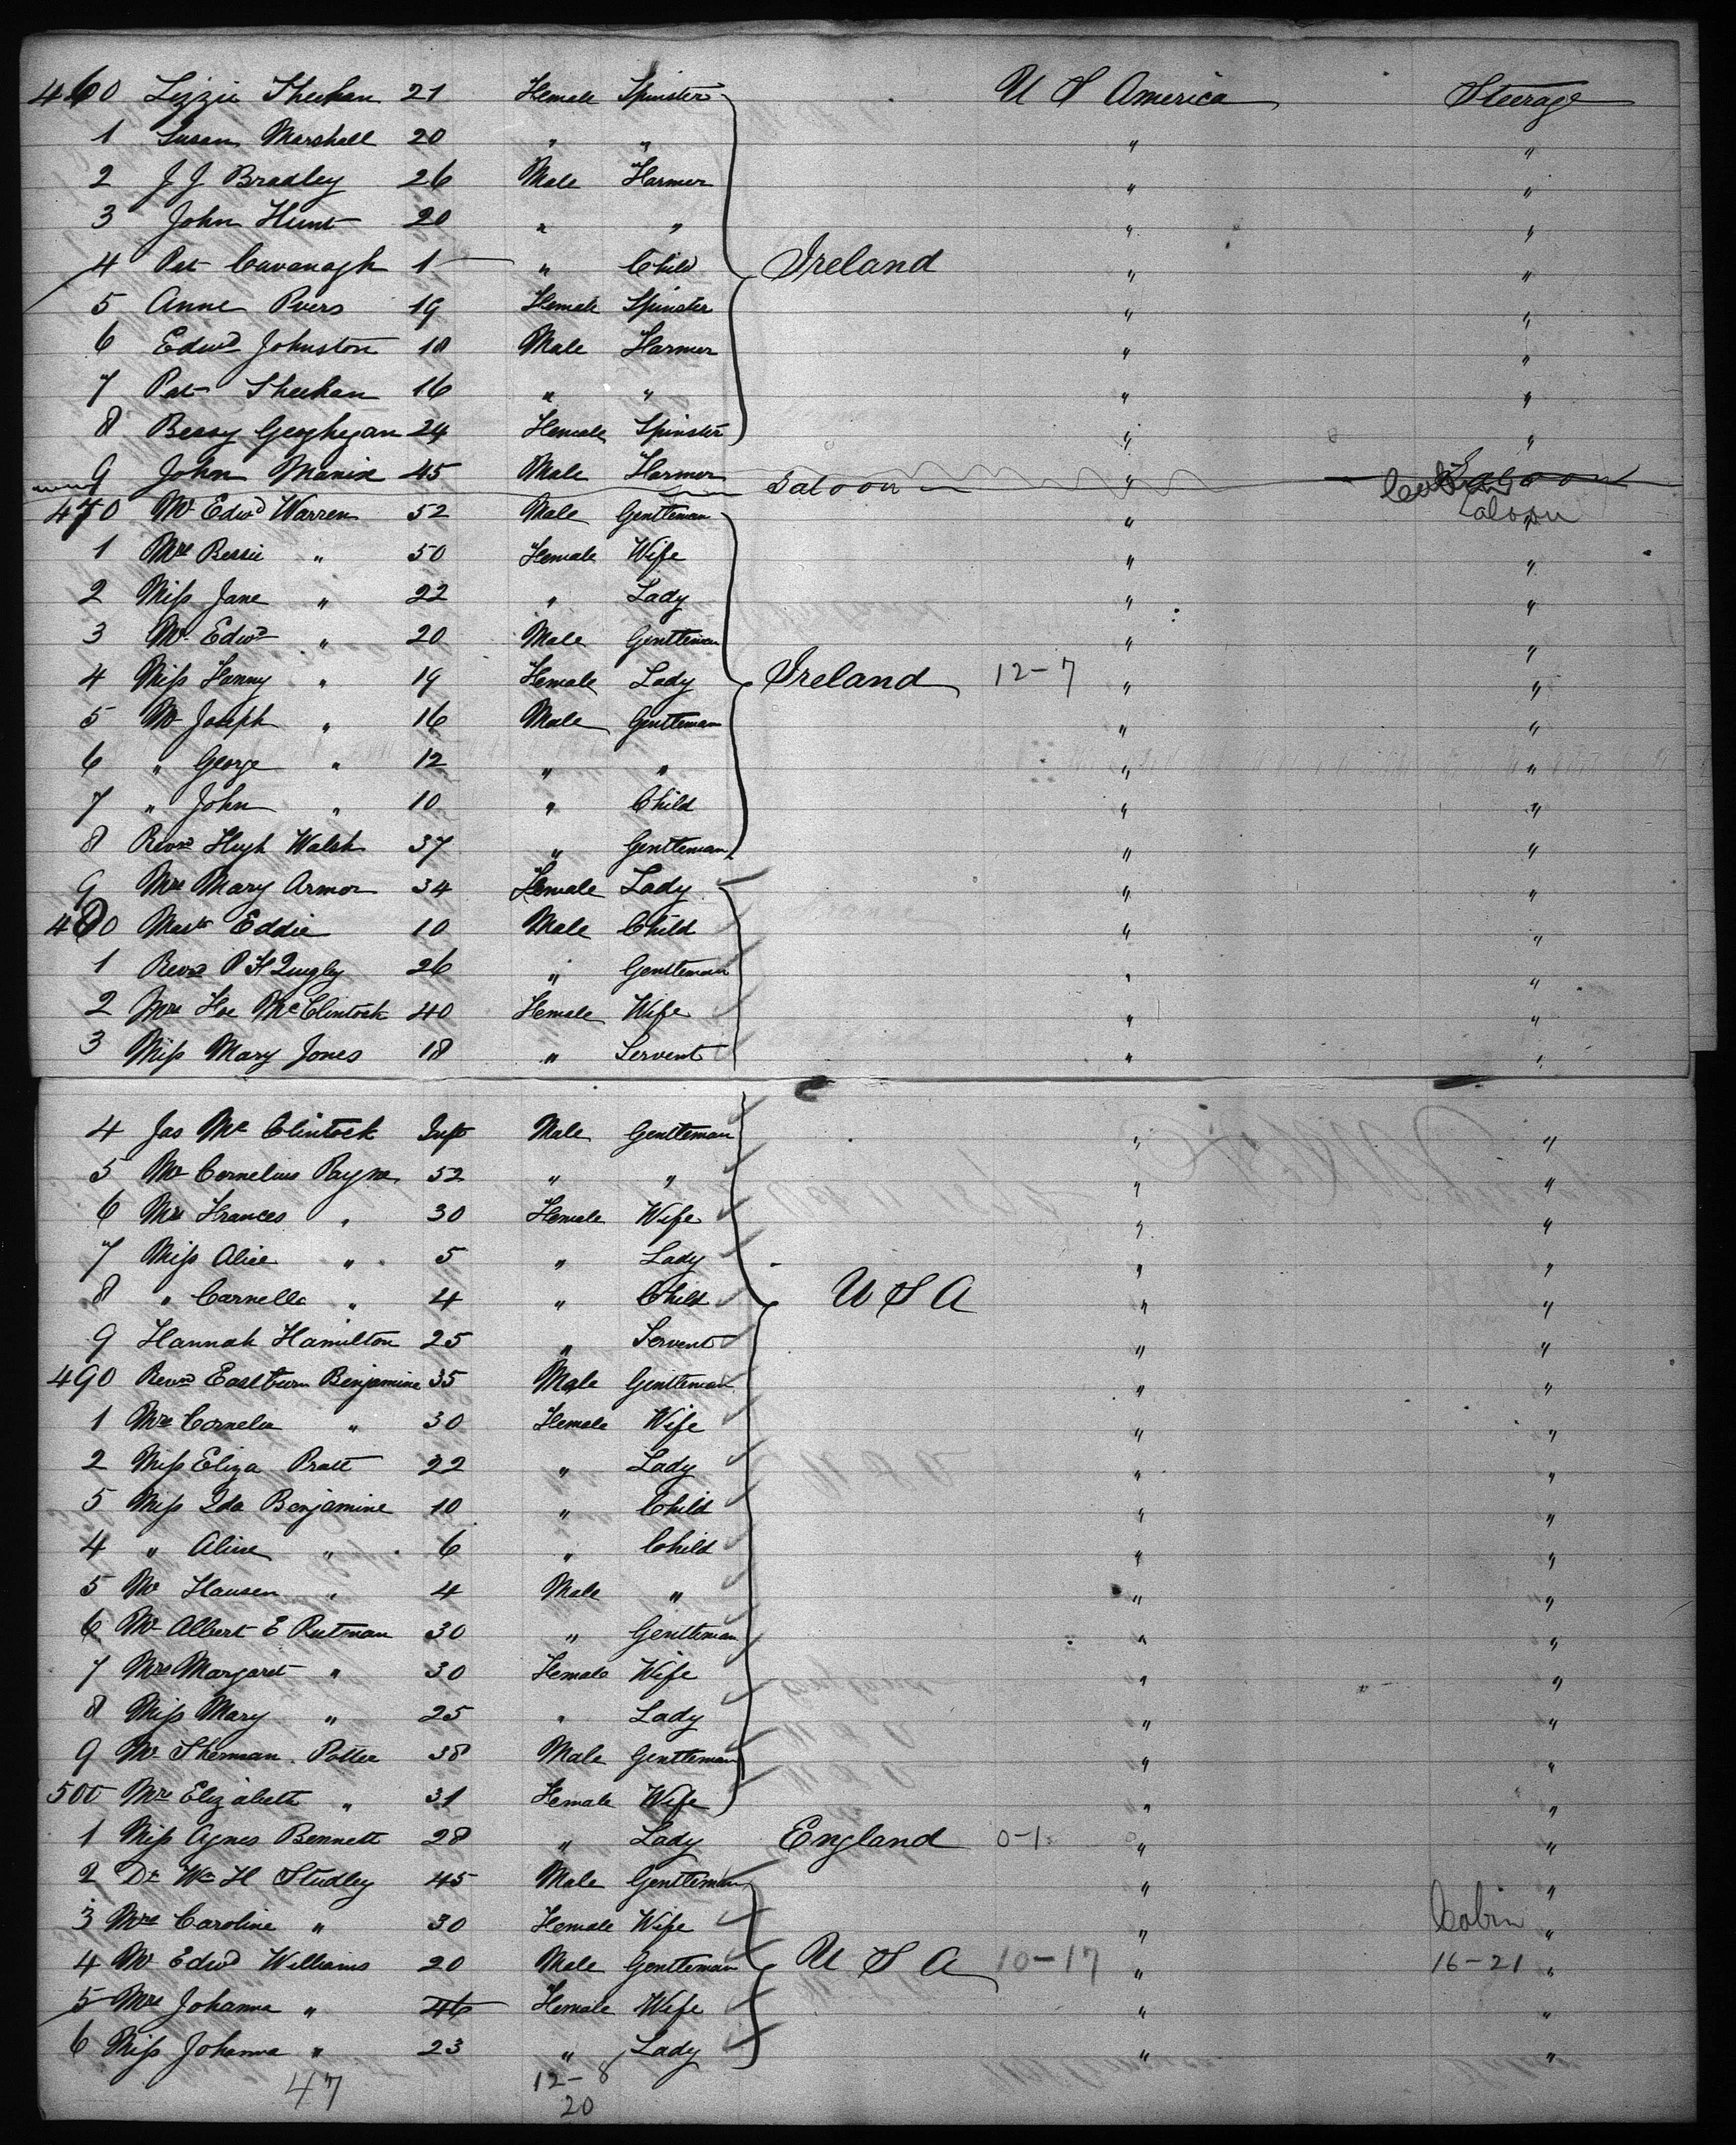 460 Lizzie Sheehan 21 Female Spinster U S America Steerage
1 Susan Marshall 20 " " " "
2 J J Bradley 26 Male Farmer " "
3 John Hunt 20 " " " "
4 Pat Cavanagh 1 " Child Ireland " "
5 Anne Pvers 19 Female Spinster " "
6 Edwd Johnston 18 Male Farmer " "
7 Pat Sheehan 16 " " " "
8 Bessy Geoghegan 24 Female Spinster " "
9 John Manix 45 Male Farmer " Saloon
Saloon
470 Mr Edwd Warren 52 Male Gentleman " Saloon "
1 Mrs Bessie " 50 Female Wife " "
2 Miss Jane " 22 " Lady " "
3 Mr Edwd " 20 Male Gentleman " "
4 Miss Fanny " 19 Female Lady Ireland 12-7 " "
5 Mr Joseph " 16 Male Gentleman " "
6 " George " 12 " " " "
7 " John " 10 " Child " "
8 Revd Hugh Walsh 37 " Gentleman " "
9 Mrs Mary Armor 34 Female Lady " "
480 Mastr Eddie 10 Male Child " "
1 Revd P H Quigly 26 " Gentleman " "
2 Mrs McClintock 40 Female Wife " "
3 Miss Mary Jones 18 " Servent " "
4 Jas McClintock Inft Male Gentleman " "
5 Mr Cornelius Payne 52 " " " "
6 Mrs Frances " 30 Female Wife " "
7 Miss Alice " 5 " Lady " "
8 " Carnella " 4 " Child U S A " "
9 Hannah Hamilton 25 " Servent " "
490 Revd Eastburn Benjamine 35 Male Gentleman " "
1 Mrs Cornelia " 30 Female Wife " "
2 Miss Eliza Pratt 22 " Lady " "
5 Miss Ida Benjamine 10 " Child " "
4 " Aline " 6 " Child " "
5 Mr Hausen " 4 Male " " "
6 Mr Albert E Putman 30 " Gentleman " "
7 Mrs Margaret " 30 Female Wife " "
8 Miss Mary " 25 " Lady " "
9 Mr Sherman Potter 38 Male Gentleman " "
500 Mrs Elizabeth " 31 Female Wife " "
1 Miss Agnes Bennett 28 " Lady England 0-1 " "
2 Dr Wm H Studley 45 Male Gentleman " "
3 Mrs Caroline " 30 Female Wife " Cabin "
4 Mr Edwd Williams 20 Male Gentleman U S A 10-17 " 16-21 "
5 Mrs Johanna " 46 Female Wife " "
6 Miss Johanna " 23 " Lady " "
47 12-8
20